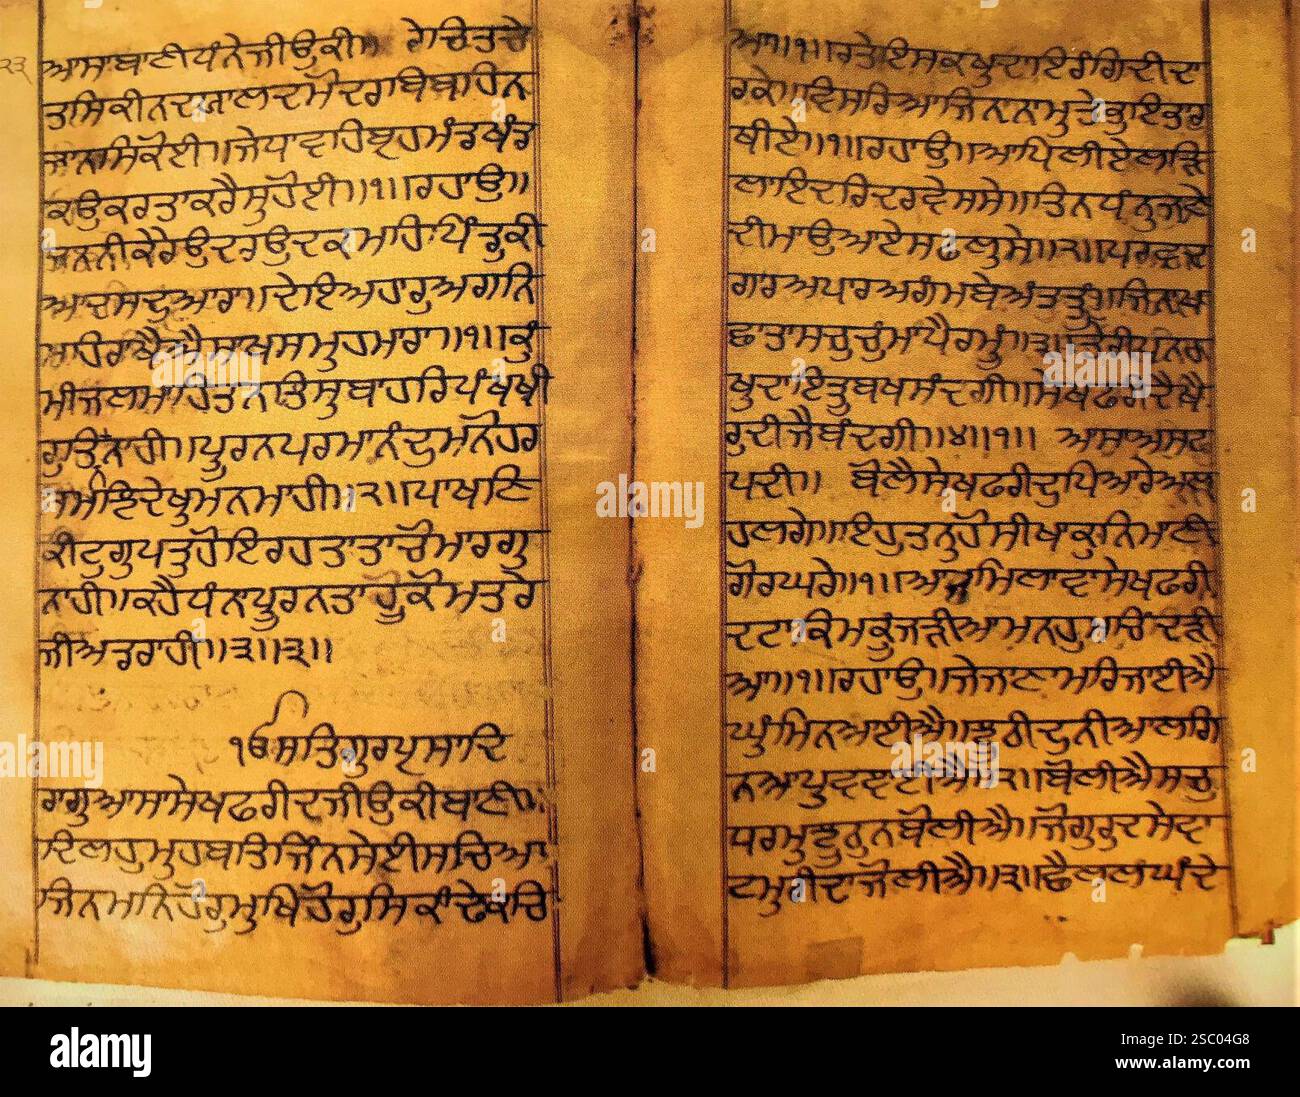 ਆਸਾਬਾਣੀਧੰਨੇਜੀਉਕੀ॥ ਰੇਚਿਤਚੇ
ਤਸਿਕੀਨਦਯਾਲਦਮੋਦਰਬਿਬਾਹਿਨ
ਜਾਨਸਿਕੋਈ॥ਜੇਧਾਵਾਹਿਬ੍ਰਹਮੰਡਖੰਡ
ਕਉਕਰਤਾਕਰੈਸੁਹੋਈ॥੧॥ਰਹਾਉ॥
ਜਨਨੀਕੇਰੇਉਦਰਉਦਕਮਾਹਿਪਿੰਡੁਕੀ
ਆਦਸਦੁਆਰਾ॥ਦੇਇਅਹਾਰੁਅਗਨਿ
ਮਾਹਿਰਾਖੈਐਸਾਖਸਮੁਹਮਾਰਾ॥੧॥ਕੁੰ
ਮੀਜਲਮਾਹਿਤਨਤਿਸੁਬਾਹਰਿਪੰਖਖੀ
ਰੁਤਿੰਨਾਹੀ॥ਪੂਰਨਪਰਮਾਨੰਦੁਮਨੋਹਰ
ਸਮਝਿਦੇਖੁਮਨਮਾਹੀ॥੨॥ਪਾਖਣਿ
ਕੀਟੁਗੁਪਤੁਹੋਇਰਹਤਾਤਾਚੋਮਾਰਗੁ
ਨਾਹੀ॥ਕਹੈਧੰਨਾਪੂਰਨਤਾਹੂਕੋਮਤਰੇ
ਜੀਅਡਰਾਹੀ॥੩॥੩॥
੧ਓਸਤਿਗੁਰਪ੍ਰਸਾਦਿ
ਰਾਗੁਆਸਾਸੇਖਫਰੀਦਜੀਉਕੀਬਾਣੀ॥
ਦਿਲਹੁਮੁਹਬਤਿਜਿੰਨਸੇਈਸਚਿਆ
ਜਿਨਮਨਿਹੋਰੁਮੁਖਿਹੋਰੁਸਿਕਾਂਢੇਕਚਿ
ਆ॥੧॥ਰਤੇਇਸਕਖੁਦਾਇਰੰਗਿਦੀਦਾ
ਰਕੇ॥ਵਿਸਰਿਆਜਿਨਨਾਮੁਤੇਭੁਇਭਾਰੁ
ਥੀਏ॥੧॥ਰਹਾਉ॥ਆਪਿਲੀਏਲੜਿ
ਲਾਇਦਰਿਦਰਵੇਸਸੇ॥ਤਿਨਧੰਨੁਜਣੇ
ਦੀਮਾਉਆਏਸਫਲੁਸੇ॥੨॥ਪਰਵਦ
ਗਾਰਅਪਾਰਅਗੰਮਬੇਅੰਤਤੂੰ॥ਜਿਨਪਛਾ
ਛਾਤਾਸਚੁਚੁੰਮਾਪੈਰਮੂੰ॥੩॥ਤੇਰੀਪਨਹ
ਖੁਦਾਇਤੂਬਖਸੰਦਗੀ॥ਸੇਖਫਰੀਦੈਖੈ
ਰੁਦੀਜੈਬੰਦਗੀ॥੪॥੧॥ ਆਸਾਅਸਟ
ਪਦੀ॥ ਬੋਲੈਸੇਖਫਰੀਦੁਪਿਆਰੇਅਲ
ਹਲਗੇ॥ਇਹੁਤਨੁਹੋਸੀਖਾਕੁਨਿਮਾਣੀ
ਗੋਰਘਰੇ॥੧॥ਅਜੁਮਿਲਾਵਾਸੇਖਫਰੀ
ਦਟਾਕਿਮਕੂੰਜੜੀਆਮਨਹੁਮਚਿੰਦੜੀ
ਆ॥੧॥ਰਹਾਉ॥ਜੇਜਾਣਾਮਰਿਜਾਈਐ
ਘੁੰਮਿਨਆਈਐ॥ਝੂਠੀਦੁਨੀਆਲਗਿ
ਨਆਪੁਵਞਾਈਐ॥੨॥ਬੋਲੀਐਸਚੁ
ਧਰਮੁਝੂਠੁਨਬੋਲੀਐ॥ਜੋਗੁਰੁਦਸੇਵਾ
ਟਮੁਰੀਦਾਜੋਲੀਐ॥੩॥ਛੈਲਲੰਘੰਦੇ